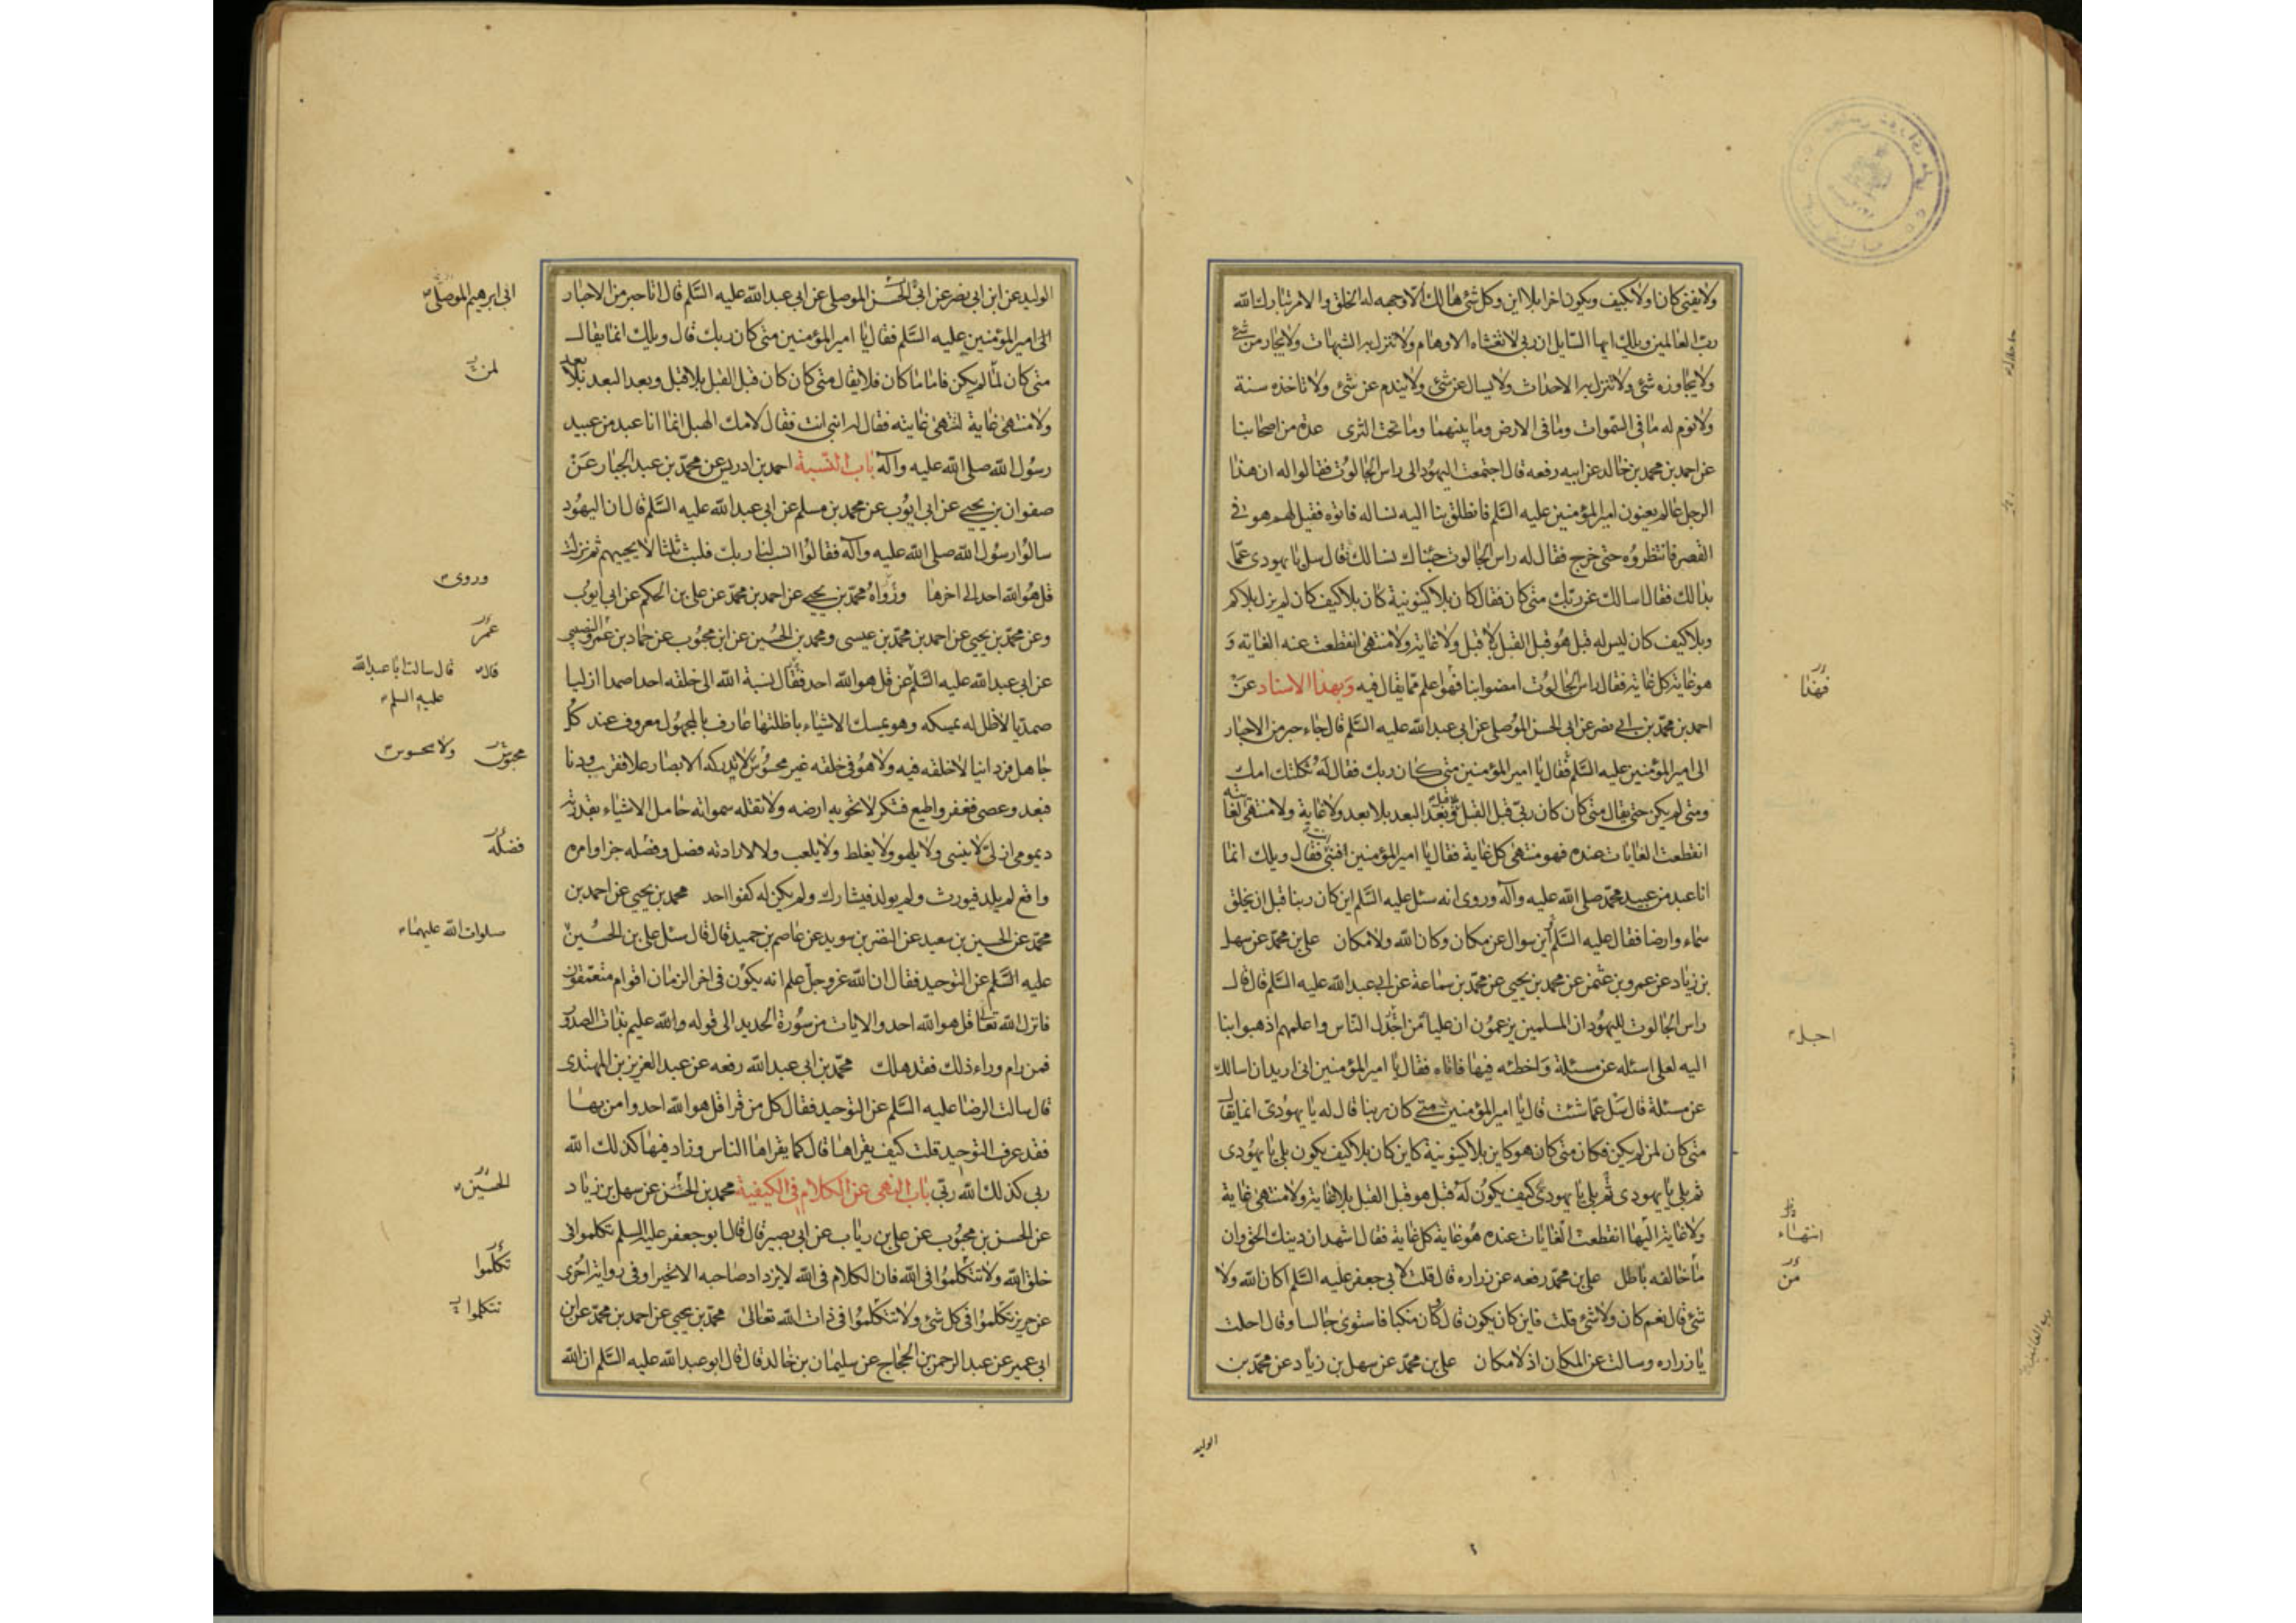 ولا يفنى كان اولا بلا كيف ويكون اخرا بلا اين وكل شئ هالك الا وجهه له الخلق والامر تبارك الله
رب العالمين ويلك ايها السايل ان ربى لا تغشاه الاوهام ولا تنزل به الشبهات ولا يجار من شئ
ولا يجاوزه شئ ولا تنزل به الاحداث ولا يسال عن شئ ولا يندم عن شئ ولا تاخذه سنة
ولا نوم له ما فى السموات وما فى الارض وما بينهما وما تحت الثرى عدة من اصحابنا
عن احمد بن محمد بن خالد عن ابيه رفعه قال اجتمعت اليهود الى راس الجالوت فقالوا له ان هذا
الرجل عالم يعنون امير المؤمنين عليه السلم فانطلق بنا اليه نساله فاتوه فقيل لهم هو فى
القصر فانتظروه حتى خرج فقال له راس الجالوت جئناك نسالك قال سل يا يهودى عما
بدا لك فقال اسالك عن ربك متى كان فقال كان بلا كينونية كان بلا كيف كان لم يزل بلا كم
وبلا كيف كان ليس له قبل هو قبل القبل بلا قبل ولا غاية ولا منتهى انقطعت عنه الغاية و
هو غاية كل غاية فقال راس الجالوت امضوا بنا فهو اعلم مما يقال فيه وبهذا الاسناد عن
فهذا
احمد بن محمد بن ابى نصر عن ابى الحسن الموصلى عن ابى عبدالله عليه السلم قال جاء حبر من الاحبار
الى امير المؤمنين عليه السلم فقال يا امير المؤمنين متى كان ربك فقال له ثكلتك امك
ومتى لم يكن حتى يقال متى كان كان ربى قبل القبل بلا قبل وبعد البعد بلا بعد ولا غاية ولا منتهى لغايته
انقطعت الغايات عنده فهو منتهى كل غاية فقال يا امير المؤمنين افنبى انت فقال ويلك انما
انا عبد من عبيد محمد صلى الله عليه وآله وروى انه سئل عليه السلم اين كان ربنا قبل ان يخلق
سماء وارضا فقال عليه السلم اين سوال عن مكان وكان الله ولا مكان على بن محمد عن سهل
بن زياد عن عمرو بن عثمن عن محمد بن يحيى عن محمد بن سماعة عن ابى عبدالله عليه السلم قال قال
راس الجالوت لليهود ان المسلمين يزعمون ان عليا من اجدل الناس واعلمهم اذهبوا بنا
اجدل
اليه لعلى اسئله عن مسئلة واخطئه فيها فاتاه فقال يا امير المؤمنين انى اريد ان اسالك
عن مسئلة قال سل عما شئت قال يا امير المؤمنين متى كان ربنا قال له يا يهودى انما يقال
متى كان لمن لم يكن فكان متى كان هو كاين بلا كينونية كاين كان بلا كيف يكون بلى يا يهودى
ثم بلى يا يهودى ثم بلى يا يهودى كيف يكون له قبل هو قبل القبل بلا غاية ولا منتهى غاية
ولا غاية اليها انقطعت الغايات عنده هو غاية كل غاية فقال اشهد ان دينك الحق وان
انتهاء
ما خالفه باطل على بن محمد رفعه عن زراره قال قلت لابى جعفر عليه السلم اكان الله ولا
من
شئ قال نعم كان ولا شئ قلت فاين كان يكون قال وكان متكيا فاستوى جالسا وقال احلت
يا زراره وسالت عن المكان اذ لا مكان على بن محمد عن سهل بن زياد عن محمد بن
الوليد
الوليد عن ابن ابى نصر عن ابى الحسن الموصلى عن ابى عبدالله عليه السلم قال اتا حبر من الاحبار
ابى ابرهيم الموصلى
الى امير المؤمنين عليه السلم فقال يا امير المؤمنين متى كان ربك قال ويلك انما يقال
متى كان لما لم يكن فاما ما كان فلا يقال متى كان كان قبل القبل بلا قبل وبعد البعد بلا بعد
لمن
ولا منتهى غاية لتنتهى غايته فقال له انبى انت فقال لامك الهبل انما انا عبد من عبيد
رسول الله صلى الله عليه وآله باب النسبة احمد بن ادريس عن محمد بن عبد الجبار عن
صفوان بن يحيى عن ابى ايوب عن محمد بن مسلم عن ابى عبدالله عليه السلم قال ان اليهود
سالوا رسول الله صلى الله عليه وآله فقالوا انسب لنا ربك فلبث ثلثا لا يجيبهم ثم نزلت
قل هو الله احد الى اخرها ورواه محمد بن يحيى عن احمد بن محمد عن على بن الحكم عن ابى ايوب
وروى
وعن محمد بن يحيى عن احمد بن محمد بن عيسى ومحمد بن الحسين عن ابن محبوب عن حماد بن عمرو النصيبى
عمر
عن ابى عبدالله عليه السلم عن قل هو الله احد فقال نسبة الله الى خلقه احدا صمدا ازليا
قال قال سالت ابا عبدالله
عليه السلم
صمديا لا ظل له يمسكه وهو يمسك الاشياء باظلتها عارف بالمجهول معروف عند كل
جاهل فردانيا لا خلقه فيه ولا هو فى خلقه غير محسوس لا تدركه الابصار علا فقرب ودنا
ولا محسوس
فبعد وعصى فغفر واطيع فشكر لا تحويه ارضه ولا تقله سمواته حامل الاشياء بقدرته
ديمومى ازلى لا ينسى ولا يلهو ولا يغلط ولا يلعب ولا لارادته فصل وفصله جزا وامره
فضله
واقع لم يلد فيورث ولم يولد فيشارك ولم يكن له كفوا احد محمد بن يحيى عن احمد بن
محمد عن الحسين بن سعيد عن النضر بن سويد عن عاصم بن حميد قال قال سئل على بن الحسين
صلوات الله عليهما
عليه السلم عن التوحيد فقال ان الله عز وجل علم انه يكون فى اخر الزمان اقوام متعمقون
فانزل الله تعالى قل هو الله احد والايات من سورة الحديد الى قوله والله عليم بذات الصدور
فمن رام وراء ذلك فقد هلك محمد بن ابى عبدالله رفعه عن عبد العزيز بن المهتدى
قال سالت الرضا عليه السلم عن التوحيد فقال كل من قرا قل هو الله احد وامن بها
فقد عرف التوحيد قلت كيف يقراها قال كما يقراها الناس وزاد فيها كذلك الله
ربى كذلك الله ربى باب النهى عن الكلام فى الكيفية محمد بن الحسن عن سهل بن زياد
الحسين
عن الحسن بن محبوب عن على بن رياب عن ابى بصير قال قال ابو جعفر عليه السلم تكلموا فى
خلق الله ولا تتكلموا فى الله فان الكلام فى الله لا يزداد صاحبه الا تحيرا وفى رواية اخرى
تكلموا
عن حريز تكلموا فى كل شئ ولا تتكلموا فى ذات الله تعالى محمد بن يحيى عن احمد بن محمد عن ابن
تتكلموا
ابى عمير عن عبد الرحمن بن الحجاج عن سليمان بن خالد قال قال ابو عبدالله عليه السلم ان الله